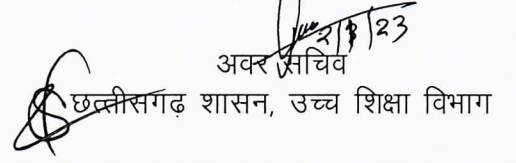 अवर सचिव
छत्तीसगढ़ शासन, उच्च शिक्षा विभाग